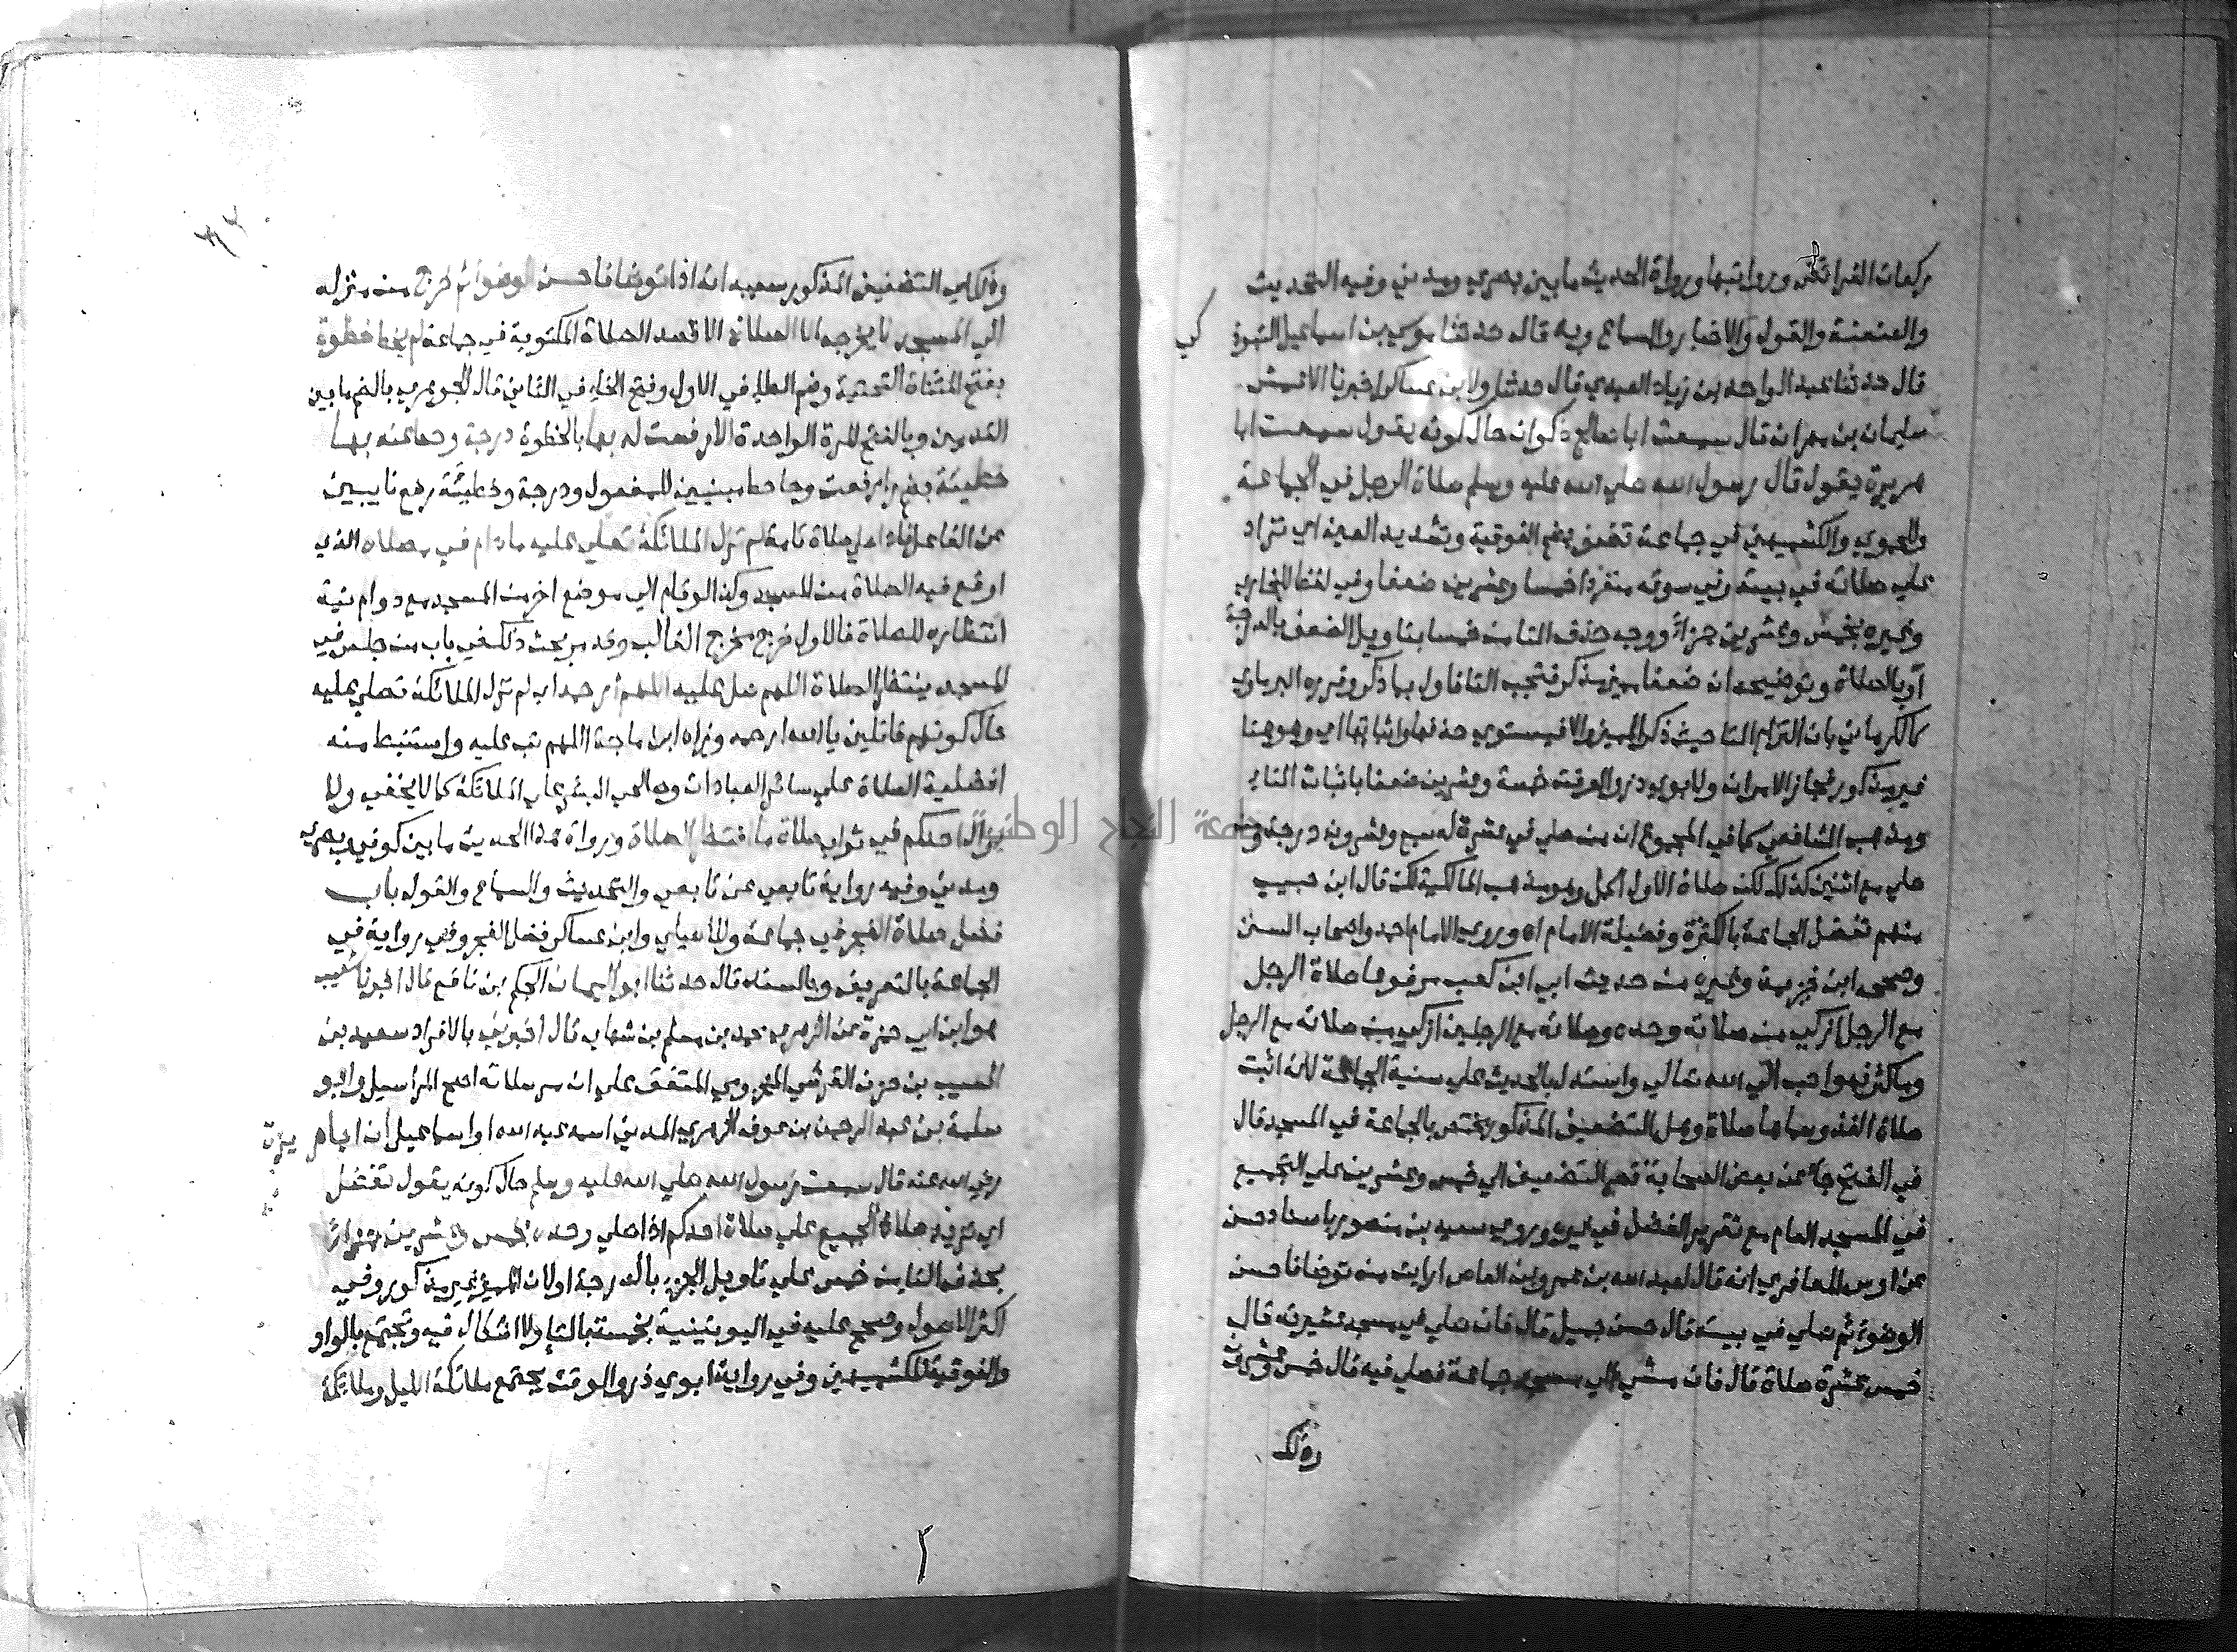 ركعات الفرائض ورواتبها ورواة الحديث ما بين بصري ومدني وفيه التحديث
والعنعنة والقول والاخبار والسماع وبه قال حدثنا موسى بن اسماعيل
قال حدثنا عبد الواحد بن زياد العبدي قال حدثنا ولابن عساكر اخبرنا الاعمش
سليمان بن مهران قال سمعت ابا صالح ذكوان حال كونه يقول سمعت ابا
هريرة يقول قال رسول الله صلي الله عليه وسلم صلاة الرجل في الجماعة
وللحموي والكشميهني في جماعة تضعف بضم الفوقية وتشديد العين اي تزاد
علي صلاته في بيته وفي سوقه منفردا خمسا وعشرين ضعفا وفي لفظ للبخاري
وغيره بخمس وعشرين جزاً ووجه حذف التا من خمسا بتاويل الضعف بالدرجة
او بالصلاة وتوضيحه ان ضعفا مميز مذكر فتجب التا فاول بما ذكر وقرره البرماوي
كالكرماني بان التزام التا حيث ذكر المميز والا فيستوي حذفها واثباتها اي وهو هنا
غير مذكور فجاز الامران ولابوي ذر والوقت خمسة وعشرين ضعفا باثبات التا
ومذهب الشافعي كما في المجموع ان من صلي في عشرة له سبع وعشرون درجة ومن
صلي مع اثنين كذلك لكن صلاة الاول اكمل وهو مذهب المالكية لكن قال ابن حبيب
منهم تفضل الجماعة بالكثرة وفضيلة الامام اه وروي الامام احمد واصحاب السنن
وصححه ابن خزيمة وغيره من حديث ابي ابن كعب مرفوعا صلاة الرجل
مع الرجل ازكي من صلاته وحده وصلاته مع الرجلين ازكي من صلاته مع الرجل
وما كثر فهو احب الي الله تعالي واستدل بالحديث علي سنية الجماعة لانه اثبت
صلاة الفذ وسماها صلاة وهل التضعيف المذكور يختص بالجماعة في المسجد قال
في الفتح جا عن بعض الصحابة قصر التضعيف الي خمس وعشرين علي التجميع
في المسجد العام مع تقرير الفضل في غيره وروي سعيد بن منصور باسناد حسن
عن اوس المعافري انه قال لعبد الله بن عمرو بن العاص ارايت من توضا فاحسن
الوضوء ثم صلي في بيته قال حسن جميل قال فان صلي في مسجد عشيرته قال
خمس عشرة صلاة قال فان مشي الي مسجد جماعة فصلي فيه قال خمس وعشرون
وذلك
وذلك اي التضعيف المذكور سببه انه اذا توضا فاحسن الوضوء ثم خرج من منزله
الي المسجد لا يخرجه الا الصلاة الا قصد الصلاة المكتوبة في جماعة لم يخط خطوة
بفتح المثناة التحتية وضم الطاء في الاول وفتح الخاء في الثاني قال الجوهري بالضم ما بين
القدمين وبالفتح للمرة الواحدة الا رفعت له بها بالخطوة درجة وحط عنه بها
خطيئة بضم را رفعت وحا حط مبنيين للمفعول ودرجة وخطيئة رفع نايبين
عن الفاعل فاذا صلي صلاة تامة لم تزل الملائكة تصلي عليه ما دام في مصلاه الذي
اوقع فيه الصلاة من المسجد وكذا لو قام الي موضع اخر من المسجد مع دوام نية
انتظاره للصلاة فالاول خرج مخرج الغالب وقد مر بحث ذلك في باب من جلس في
المسجد ينتظر الصلاة اللهم صل عليه اللهم ارحمه اي لم تزل الملائكة تصلي عليه
حال كونهم قائلين يا الله ارحمه وزاد ابن ماجة اللهم تب عليه واستنبط منه
افضلية الصلاة علي سائر العبادات وصالحي البشر علي الملائكة كما لا يخفي ولا
يزال احدكم في ثواب صلاة ما انتظر الصلاة ورواة هذا الحديث ما بين كوفي وبصري
ومدني وفيه رواية تابعي عن تابعي والتحديث والسماع والقول باب
فضل صلاة الفجر في جماعة وللاصيلي وابن عساكر فضل الفجر وفي رواية في
الجماعة بالتعريف وبالسند قال حدثنا ابو اليمان الحكم بن نافع قال اخبرنا شعيب
هو ابن ابي حمزة عن الزهري محمد بن مسلم بن شهاب قال اخبرني بالافراد سعيد بن
المسيب بن حزن القرشي المخزومي المتفق علي ان مرسلاته اصح المراسيل وابو
سلمة بن عبد الرحمن بن عوف الزهري المدني اسمه عبد الله او اسماعيل ان ابا هريرة
رضي الله عنه قال سمعت رسول الله صلي الله عليه وسلم حال كونه يقول تفضل
اي تزيد صلاة الجميع علي صلاة احدكم اذا صلي وحده بخمس وعشرين جزءاً
بحذف التا من خمس علي تاويل الجزء بالدرجة او لان المميز غير مذكور وفي
اكثر الاصول وصحح عليه في اليونينية بخمسة بالتاء ولا اشكال فيه وتجتمع بالواو
والفوقية للكشميهني وفي رواية ابوي ذر والوقت يجتمع ملائكة الليل وملائكة
جامعة النجاح الوطنية